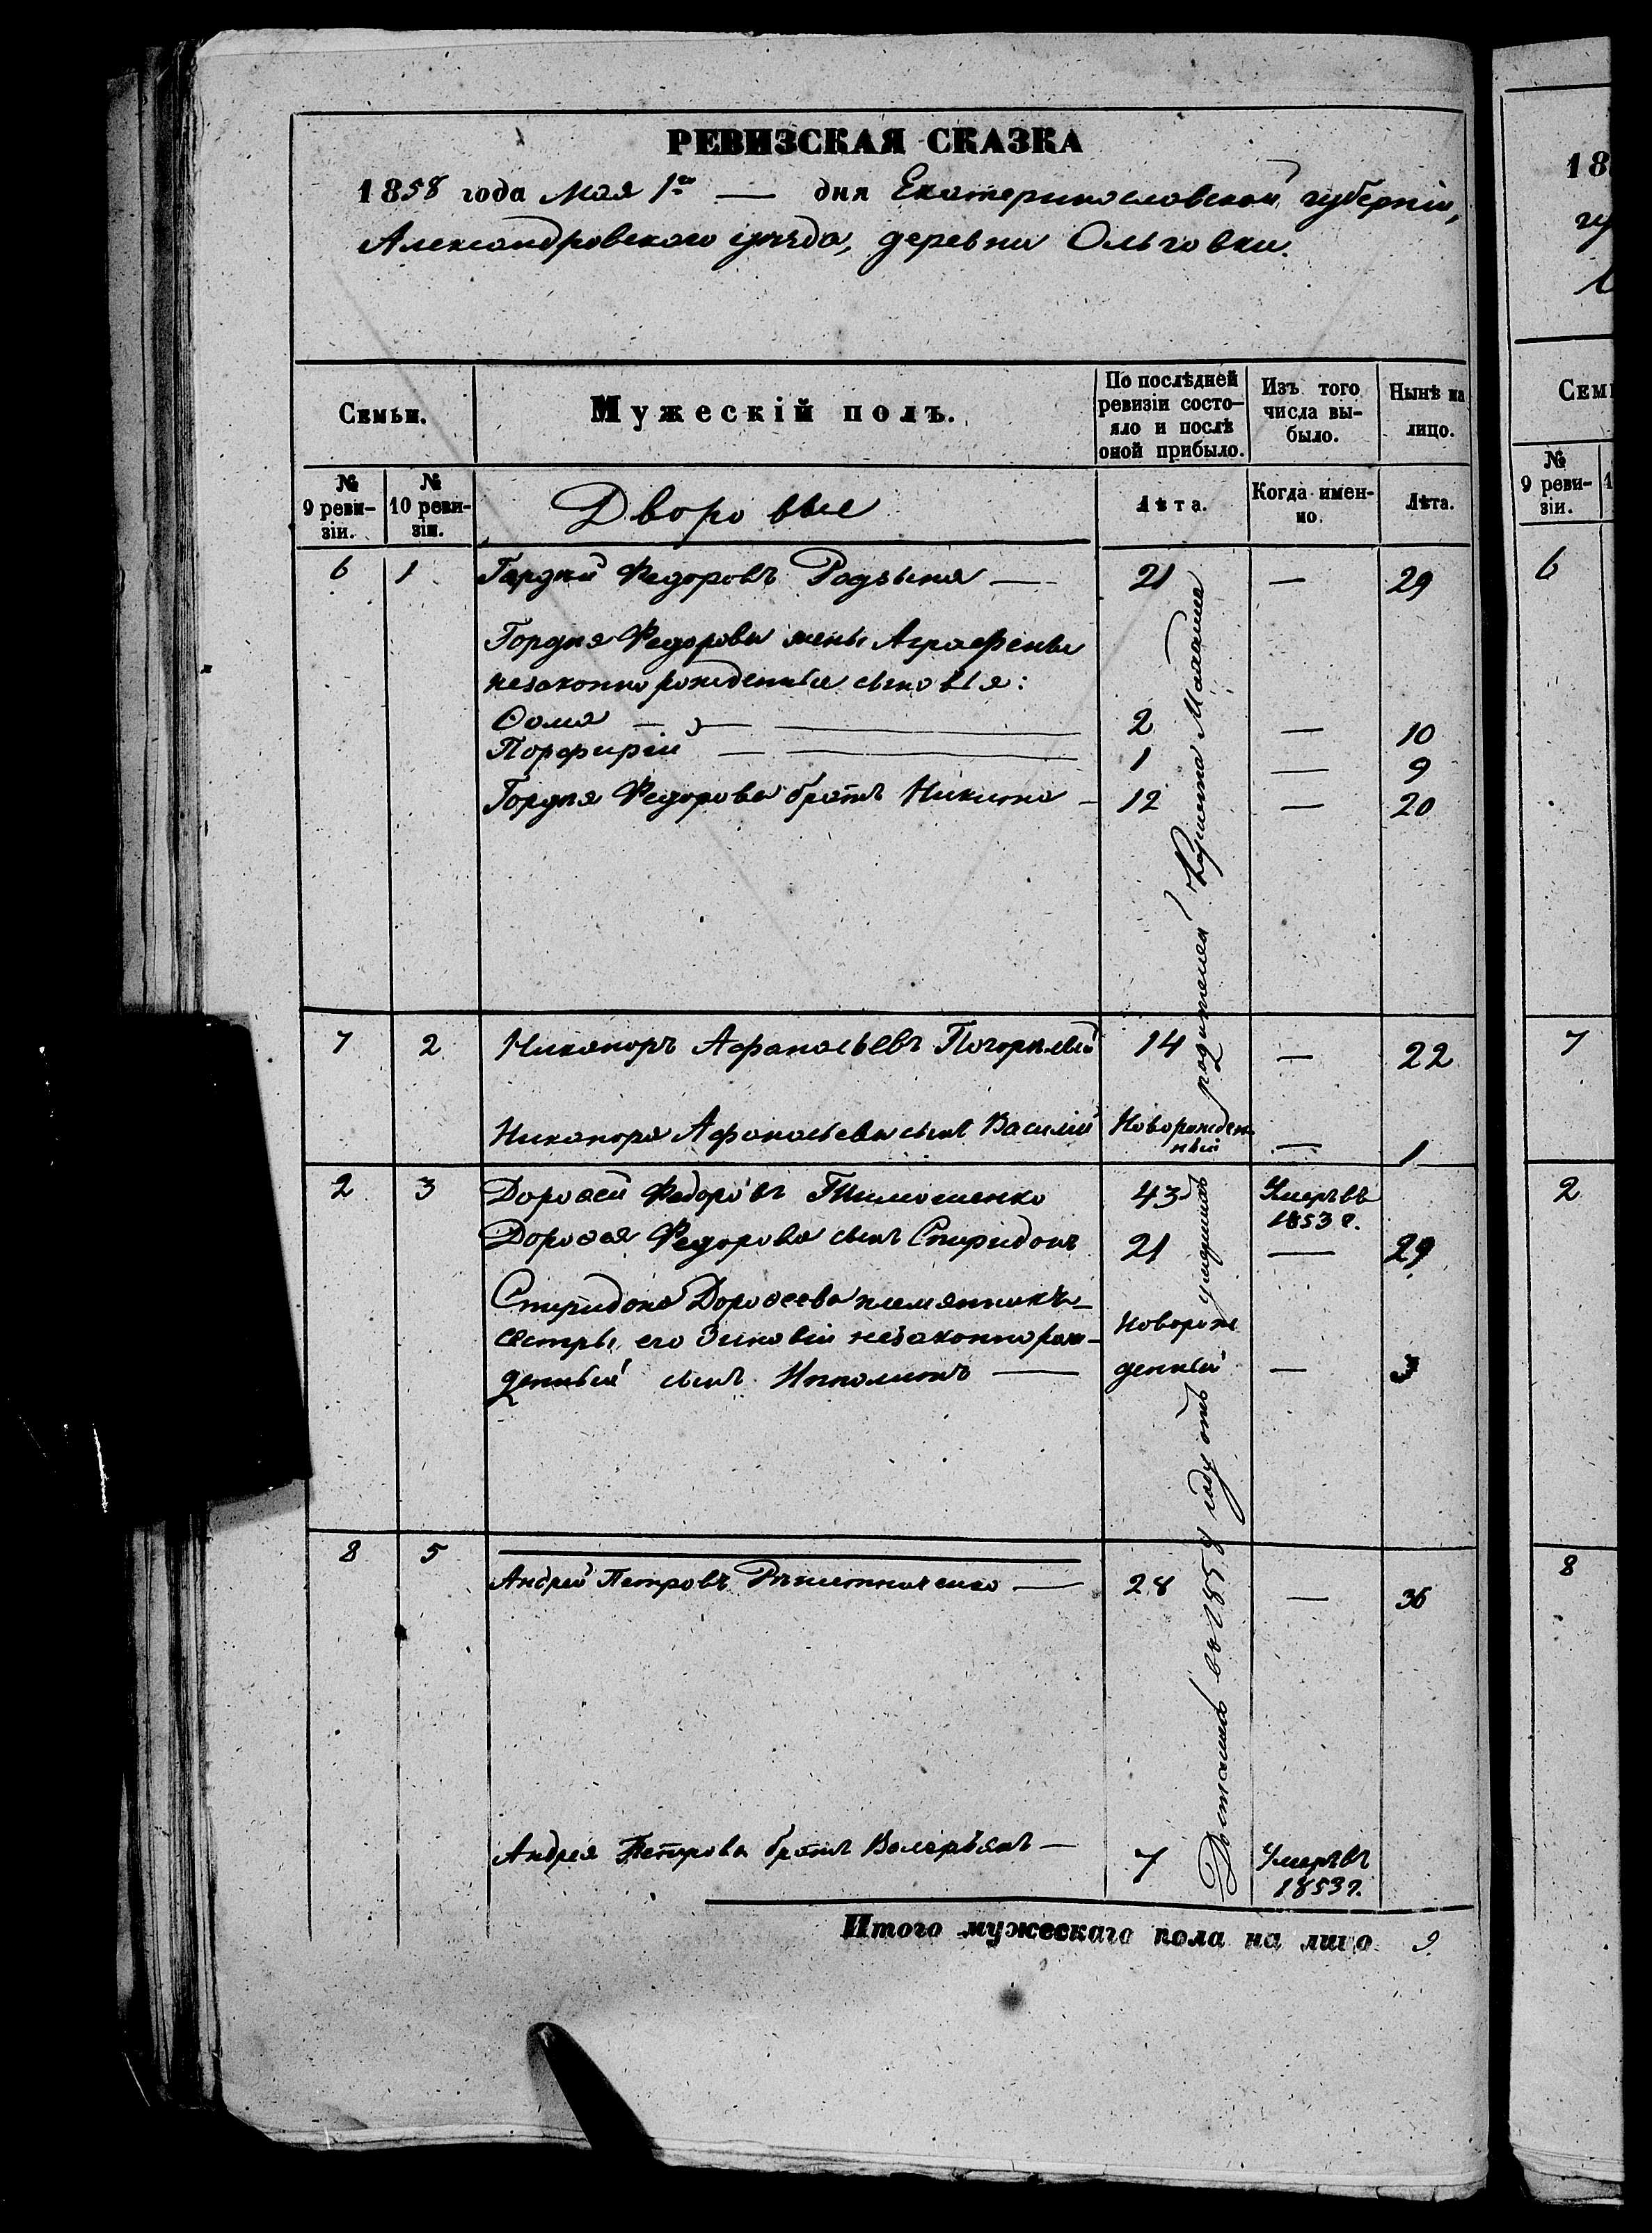 РЕВИЗСКАЯ СКАЗКА
1858 года Мая 1го — дня Екатеринославской губерніи,
Александровского уѣзда, деревни Ольговки.
Семьи.
Мужескій полъ.
По послѣдней ревизіи состо-
яло и послѣ
оной прибыло.
Изъ того
числа вы-
было.
Нынѣ на
лицо.
№
9 реви-
зіи.
№
10 реви-
зіи.
Дворовые
Лѣта.
Когда имен-
но.
Лѣта.
6 1 Гордѣй Федоровъ — 21 — 29
Гордѣя Федорова жены Аграфены
незаконно рожденные сыновья:
Фома — 2 — 10
Порфирій — 1 — 9
Гордѣя Федорова братъ Никита - 12 — 20
7 2 Никаноръ Афанасьевъ Погорѣлый 14 — 22
Никанора Афанасьева сынъ Василій Новорожден
ный — 1
2 3 Дорофей Федоровъ Тимошенко 43 Умеръ въ
1853 г.
Дорофея Федорова сынъ Спиридонъ 21 — 29
Спиридона Дорофеева племянникъ-
сестры его Зиновіи незаконнорож-
денный сынъ Ипполитъ — Новорож
денный — 3
8 5 Андрей Петровъ — 28 — 36
Андрея Петрова братъ Валеріянъ — 7 Умеръ въ
1853 г.
Достались въ 1858 году отъ умершихъ родителей
Итого мужескаго пола на лицо 9
18
Семь
№
9 реви-
зіи.
6
7
2
8